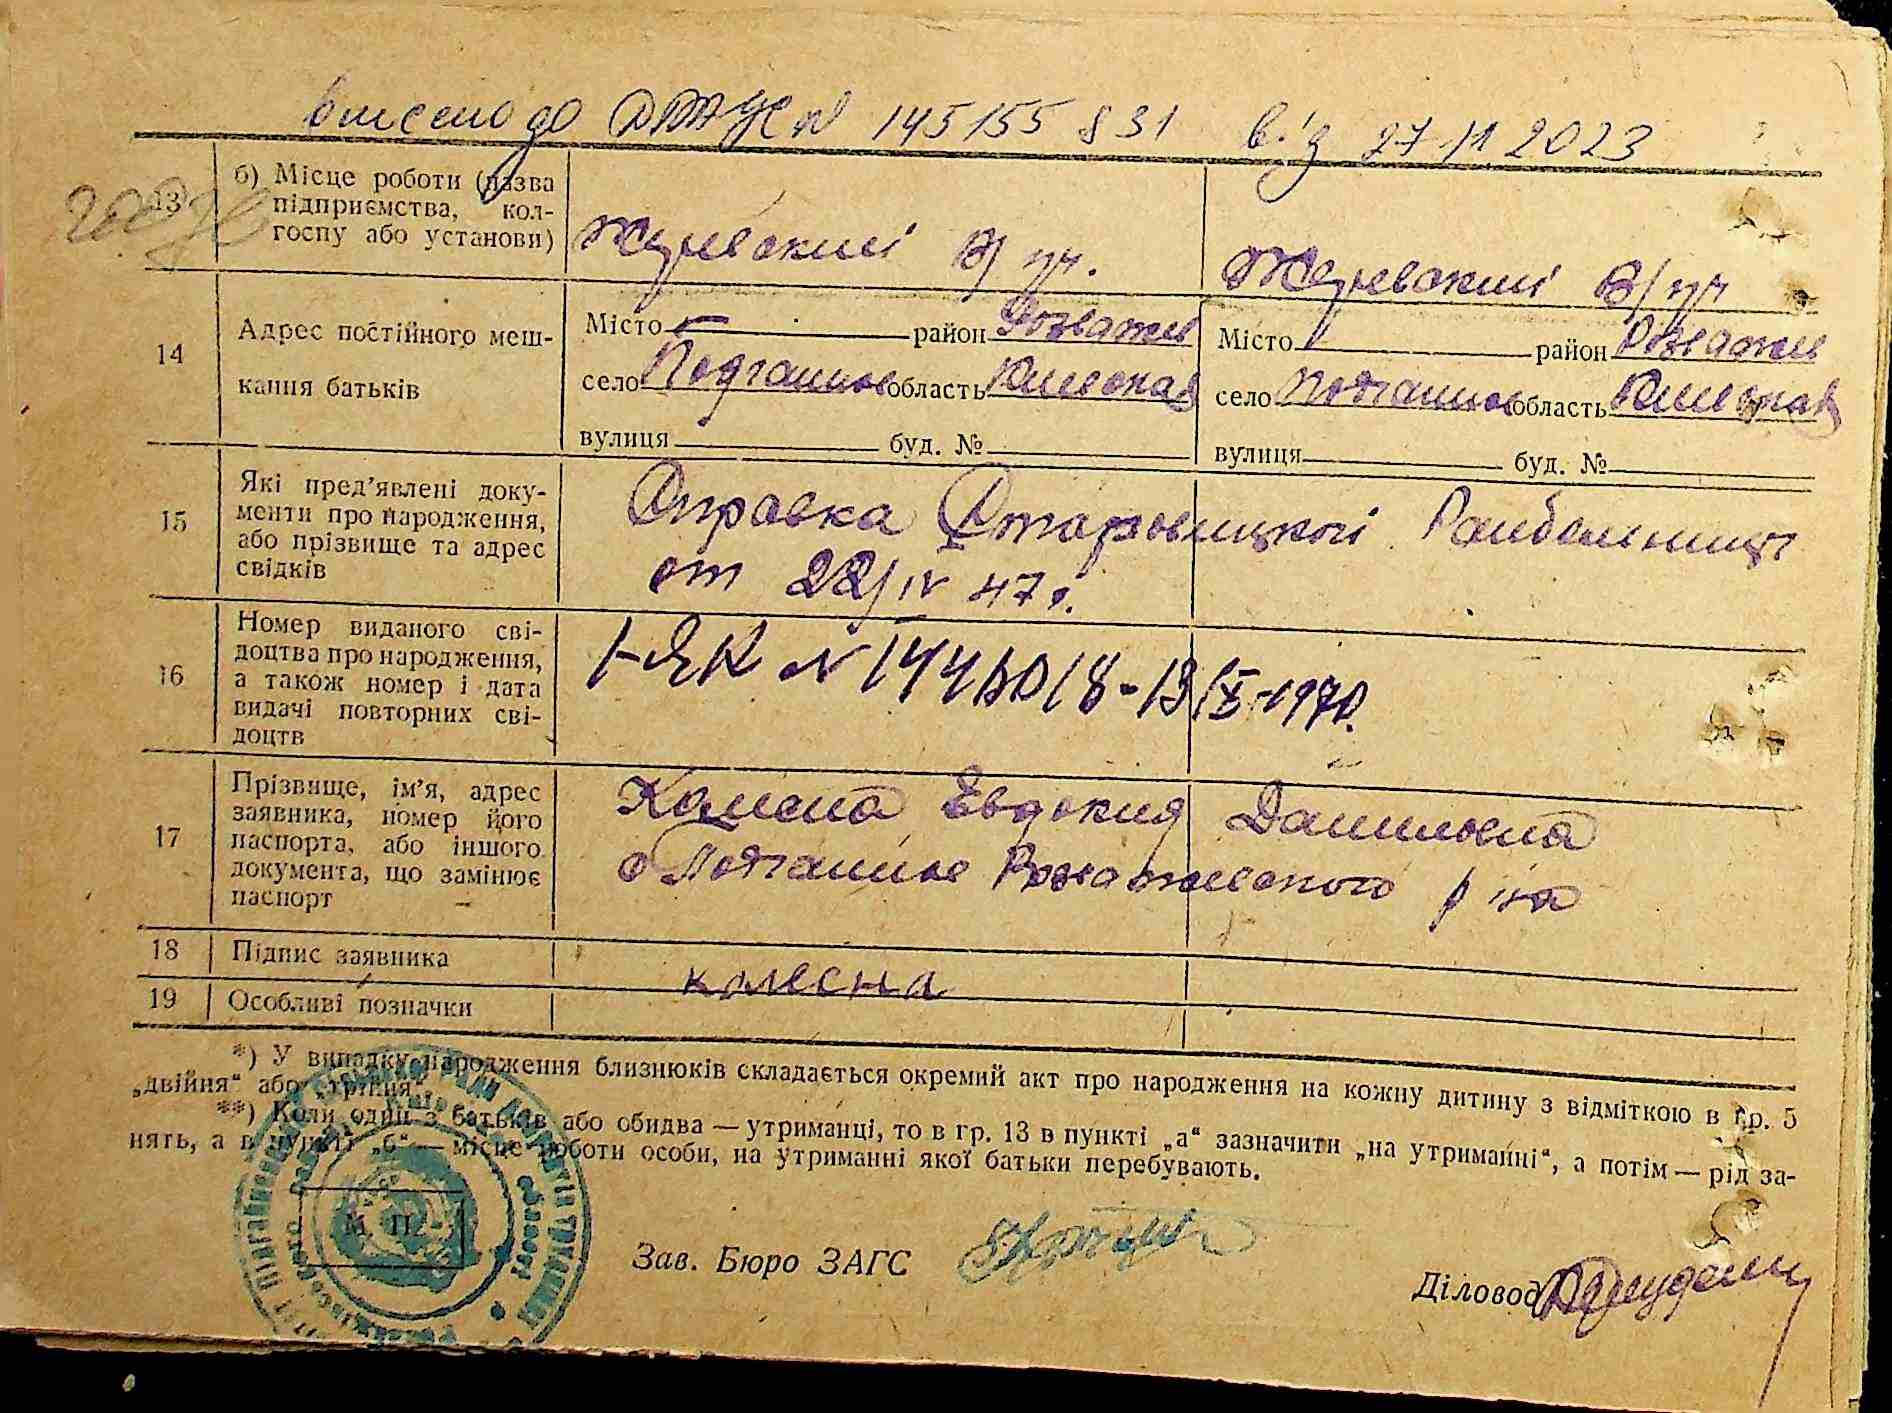 внесено до ДРАЦС N 145155831 від 27 11 2023
13
б) Місце роботи (назва
підприємства, кол-
госпу або установи)
Жеревский В/уч.
Жеревский В/уч
14
Адрес постійного меш-
кання батьків
Місто район Розважев
село Подгайное область Киевская
вулиця буд. №
Місто район Розважев
село Подгайное область Киевская
вулиця буд. №
15
Які пред'явлені доку-
менти про народження,
або прізвище та адрес
свідків
Справка Старовицкой Райбольницы
от 22/IV 47 г.
16
Номер виданого сві-
доцтва про народження,
а також номер і дата
видачі повторних сві-
доцтв
I-ЯК N 1441018-13/X-1970.
17
Прізвище, ім'я, адрес
заявника, номер його
паспорта, або іншого
документа, що замінює
паспорт
Колесна Евдокия Даниловна
с Подгайное Розважевского р на
18
Підпис заявника
колесна
19
Особливі позначки
*) У випадку народження близнюків складається окремий акт про народження на кожну дитину з відміткою в гр. 5
„двійня“ або „трійня“
**) Коли один з батьків або обидва — утриманці, то в гр. 13 в пункті „а“ зазначити „на утриманні“, а потім — рід за-
нять, а в пункті „б“ — місце роботи особи, на утриманні якої батьки перебувають.
М П
Зав. Бюро ЗАГС
Діловод